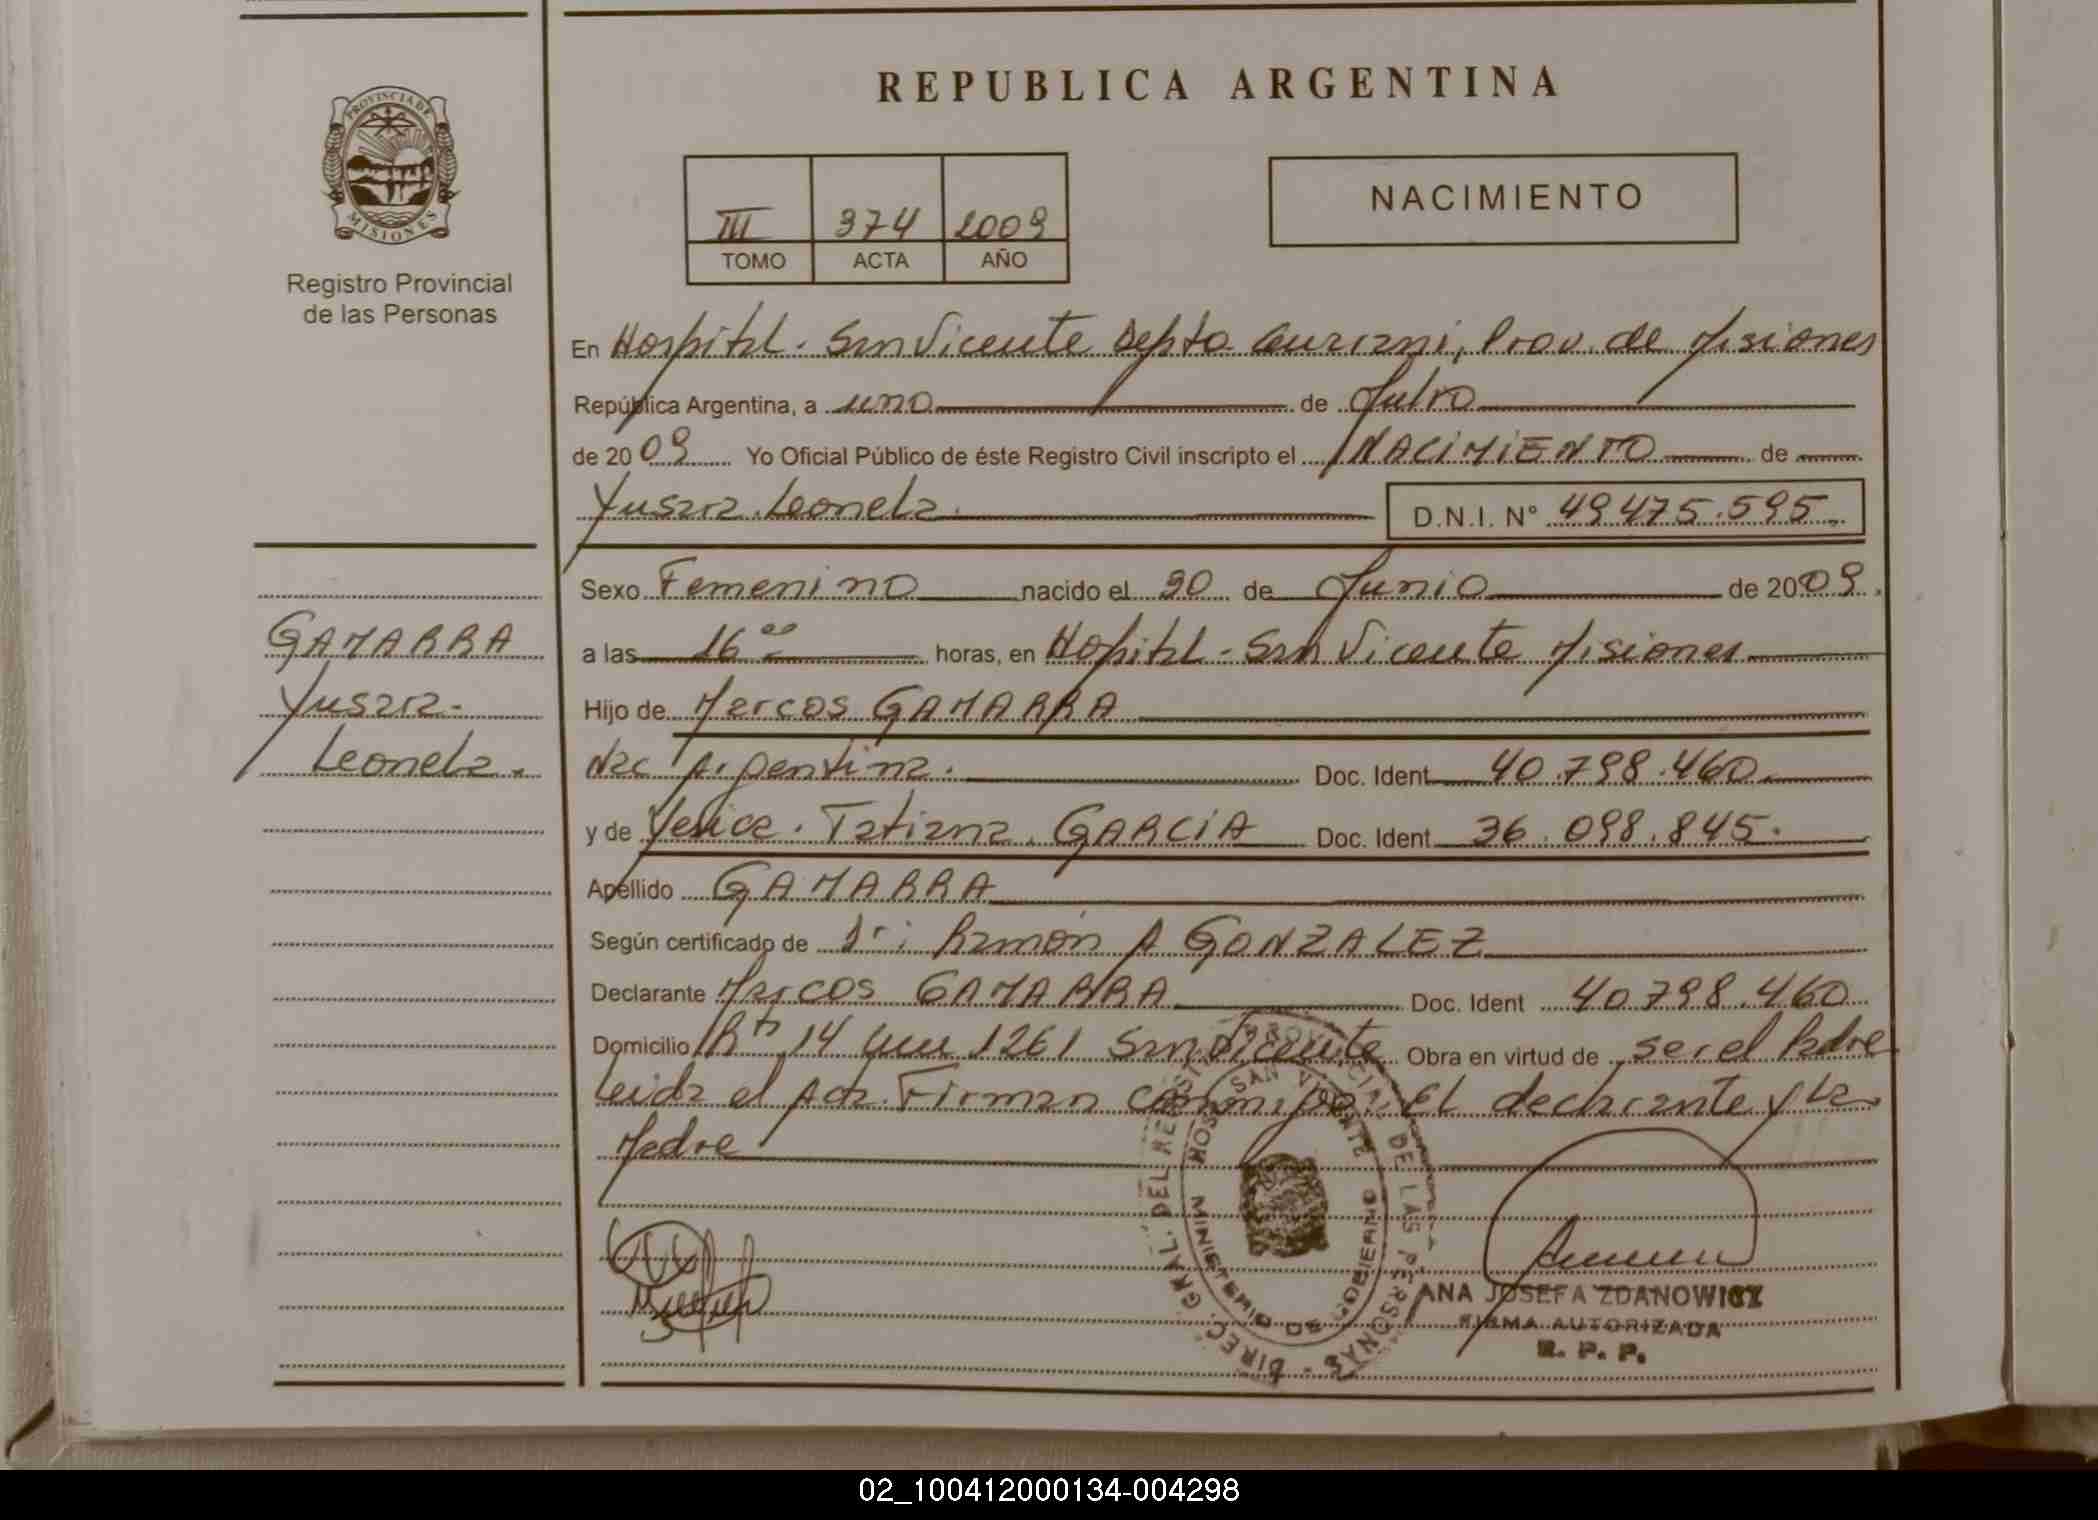 REPUBLICA ARGENTINA
PROVINCIA DE MISIONES
Registro Provincial
de las Personas
III 374 2009
TOMO ACTA AÑO
NACIMIENTO
En Hospital. San Vicente Depto Guarani, Prov. de Misiones
República Argentina, a uno de Julio
de 2009 Yo Oficial Público de éste Registro Civil inscripto el NACIMIENTO de
Yusara Leonela. D.N.I. N° 49475.595.
Sexo Femenino nacido el 30 de Junio de 2009.
a las 16 ºº horas, en Hospital - San Vicente Misiones
Hijo de Marcos GAMARRA
Nac Argentina. Doc. Ident 40.798.460.
y de Yesica. Tatiana. GARCIA Doc. Ident 36.098.845.
Apellido GAMARRA
Según certificado de Dr: Ramón A GONZALEZ
Declarante Marcos GAMARRA Doc. Ident 40798.460
Domicilio Rta 14 km 1261 San Vicente Obra en virtud de ser el Padre
Leida el Acta. Firman conmigo: El declarante y La
Madre
GAMARRA
Yusara
Leonela.
DIREC. GRAL. DEL REGISTRO PROVINCIAL DE LAS PERSONAS
HOSP. SAN VICENTE
MINISTERIO DE GOBIERNO
ANA JOSEFA ZDANOWICZ
FIRMA AUTORIZADA
R. P. P.
02_100412000134-004298